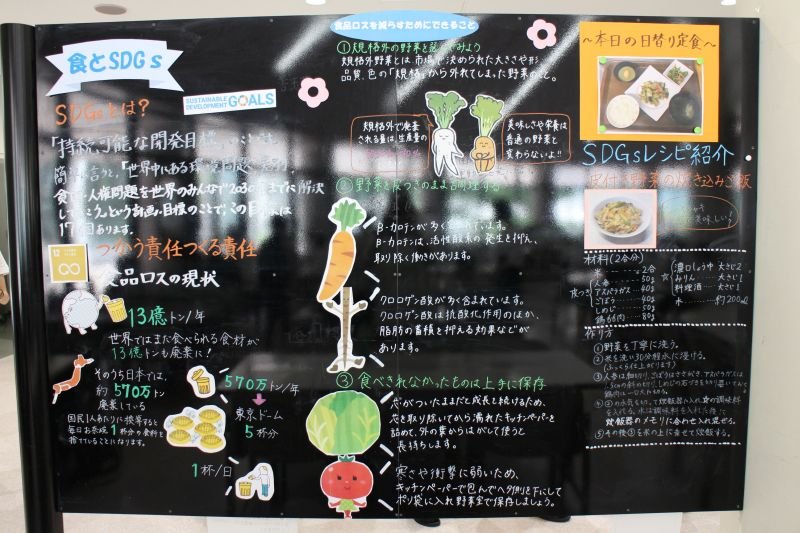 食とSDGs
SDGsとは?
SUSTAINABLE
DEVELOPMENT GOALS
「持続可能な開発目標」のことです。
簡単に言うと、「世界中にある環境問題
人権問題を世界のみんなで2030年までに解決
していこう。という計画・目標のことで、この目標は
17個あります。
つかう責任つくる責任
食品ロスの現状
13億トン/年
世界ではまだ食べられる食材が
13億トンも廃棄に!
そのうち日本では、
約570万トン
廃棄している
国民1人あたりに換算すると
毎日お茶碗1杯分の食料を
捨てていることになります。
570万トン/年
東京ドーム
5杯分
1杯/日
食品ロスを減らすためにできること
①規格外の野菜を選んでみよう
規格外野菜とは市場で決められた大きさや形
品質、色の「規格」から外れてしまった野菜のこと。
規格外で廃棄
される量は生産量の
美味しさや栄養は
普通の野菜と
変わらないよ!!
②野菜を皮つきのまま調理する
β-カロテンが多く含まれています。
β-カロテンは、活性酸素の発生を抑え、
取り除く働きがあります。
クロロゲン酸が多く含まれています。
クロロゲン酸は抗酸化作用のほか、
脂肪の蓄積を抑える効果などが
あります。
③食べきれなかったものは上手に保存
芯がついたままだと成長を続けるため、
芯を取り除いてから濡れたキッチンペーパーを
詰めて、外の葉からはがして使うと
長持ちします。
寒さや衝撃に弱いため、
キッチンペーパーで包んでヘタ側を下にして
ポリ袋に入れ野菜室で保存しましょう。
~本日の日替り定食~
SDGsレシピ紹介
皮付き野菜の炊き込みご飯
美味しい!
材料(2合分)
米 2合
皮つき
人参 50g
アスパラガス 40g
ごぼう 40g
しめじ 50g
鶏もも肉 80g
☆
濃口しょうゆ 大さじ2
みりん 大さじ1
料理酒 大さじ1
水 約200
作り方
①野菜を丁寧に洗う。
②米を洗い30分程水に浸ける。
(ふっくら仕上がります)
③人参は細切り、ごぼうはささがき、アスパラガスは
鶏肉は一口大に切る。
を入れる。水は調味料を入れた後で
炊飯器のメモリに合わせ入れ混ぜる。
⑤その後③を米の上に乗せて炊飯する。